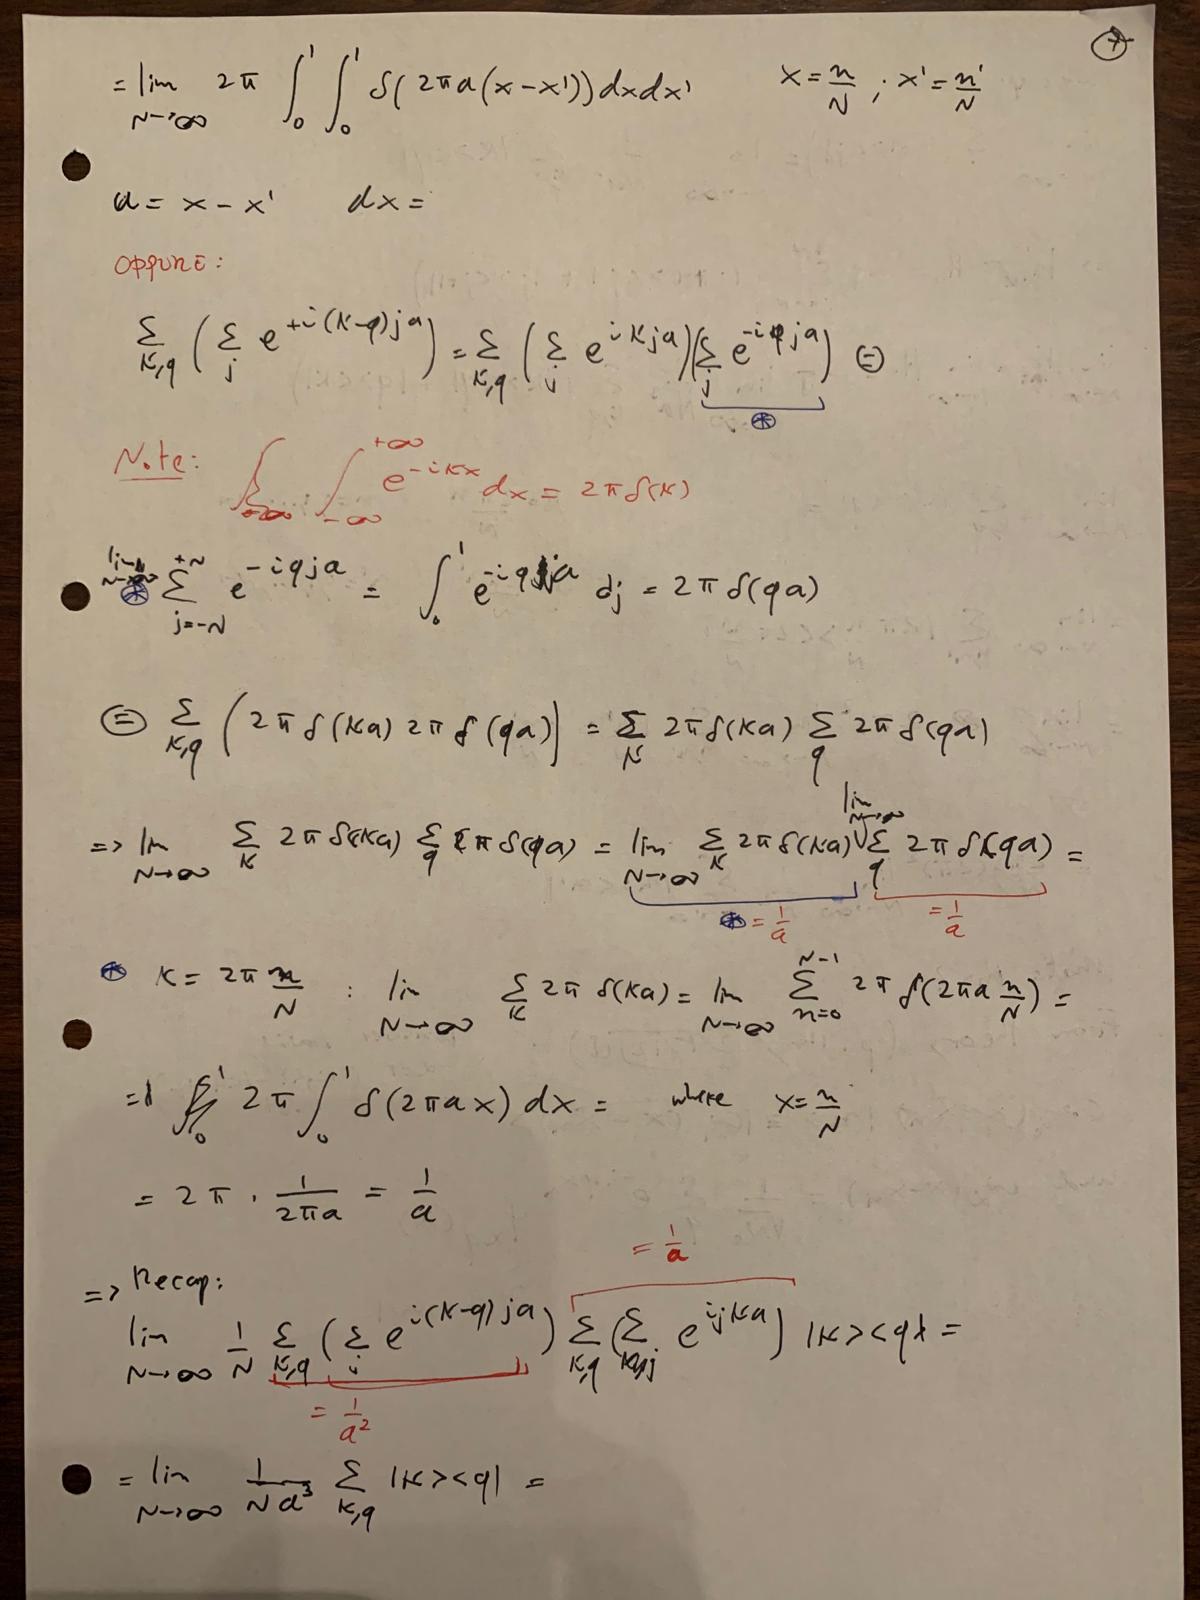 7
= lim N→∞ 2π ∫₀¹ ∫₀¹ δ(2πa(x-x'))dxdx'   x = n/N ; x' = n'/N
u = x - x'   dx =
OPPURE:
Σ_{K,q} (Σ_j e^{+i(K-q)ja}) = Σ_{K,q} (Σ_j e^{iKja})(Σ_j e^{-iqja}) ⊜
⊛
Note: ∫_{-∞}^{+∞} e^{-iKx} dx = 2πδ(K)
lim N→∞ ⊛ Σ_{j=-N}^{+N} e^{-iqja} = ∫₀¹ e^{-iqja} dj = 2πδ(qa)
⊜ Σ_{K,q} (2πδ(Ka) 2πδ(qa)) = Σ_K 2πδ(Ka) Σ_q 2πδ(qa)
=> lim N→∞ Σ_K 2πδ(Ka) Σ_q 2πδ(qa) = lim N→∞ Σ_K 2πδ(Ka) lim N→∞ Σ_q 2πδ(qa) =
⊛ = 1/a   = 1/a
⊛ K = 2π n/N : lim N→∞ Σ_K 2πδ(Ka) = lim N→∞ Σ_{n=0}^{N-1} 2π δ(2πa n/N) =
= 2π ∫₀¹ δ(2πax) dx =   where x = n/N
= 2π · 1/(2πa) = 1/a
=> Recap:   = 1/a
lim N→∞ 1/N Σ_{K,q} (Σ_j e^{i(K-q)ja}) Σ_{K,q} (Σ_j e^{ijKa}) |K><q| =
= 1/a²
= lim N→∞ 1/(Na³) Σ_{K,q} |K><q| =